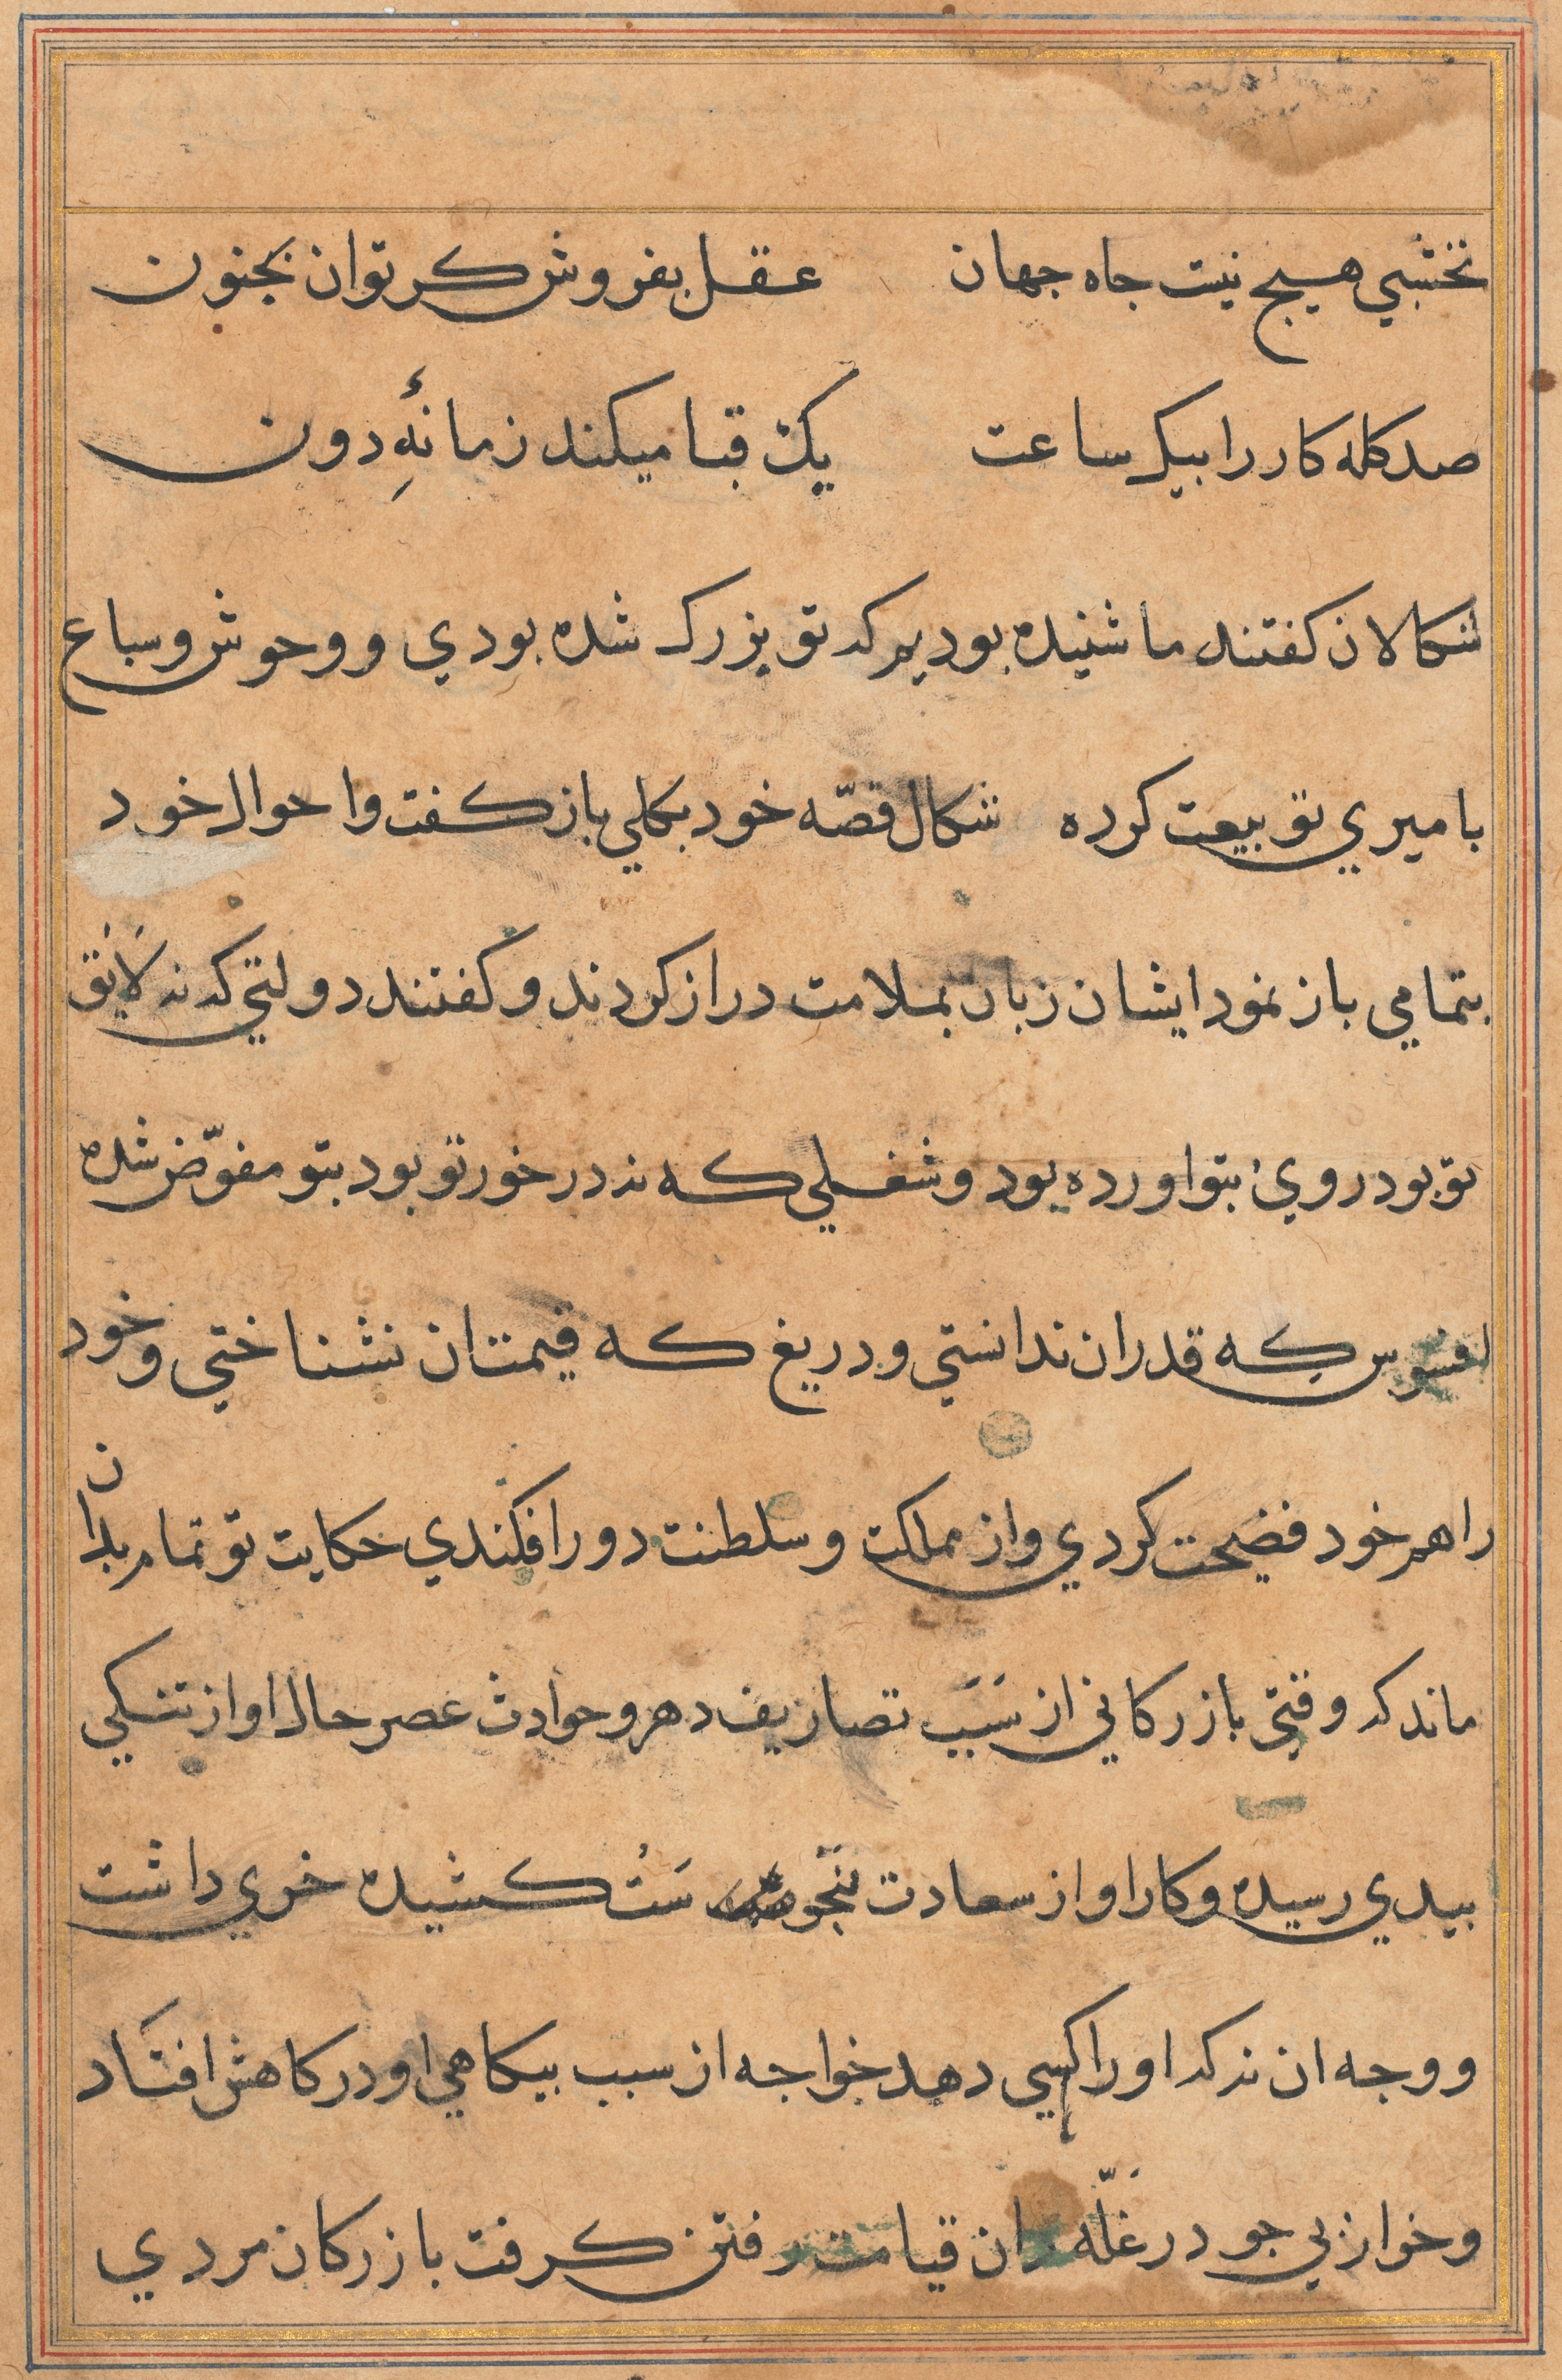 نخشبي هيچ نيست جاه جهان عقل بفروش كر توان بجنون
صد كله كار را بيك ساعت يك قبا ميكند زمانهٔ دون
شكالان كفتند ما شنيده بوديم كه تو بزرك شده بودي و وحوش و سباع
با ميري تو بيعت كرده شكال قصّه خود بكلي باز كفت و احوال خود
بتمامي باز نمود ايشان زبان بملامت دراز كردند و كفتند دولتي كه نه لايق
تو بود روي بتو اورده بود و شغلي كه نه در خور تو بود بتو مفوّض شده
افسوس كه قدر ان ندانستي و دريغ كه قيمت ان نشناختي و خود
را هم خود فضيحت كردي و از مملكت و سلطنت دور افكندي حكايت تو تمام بدان
ماند كه وقتي بازركاني از سبب تصاريف دهر و حوادث عصر حال او از تنكي
بيدي رسيده و كار او از سعادت بنحوست كشيده خري داشت
و وجه ان نه كه او را كسي دهد خواجه از سبب بيكاهي او در كاهش افتاد
و خر از بي جو در غلّه ران قيامت رفتن كرفت بازركان مردي